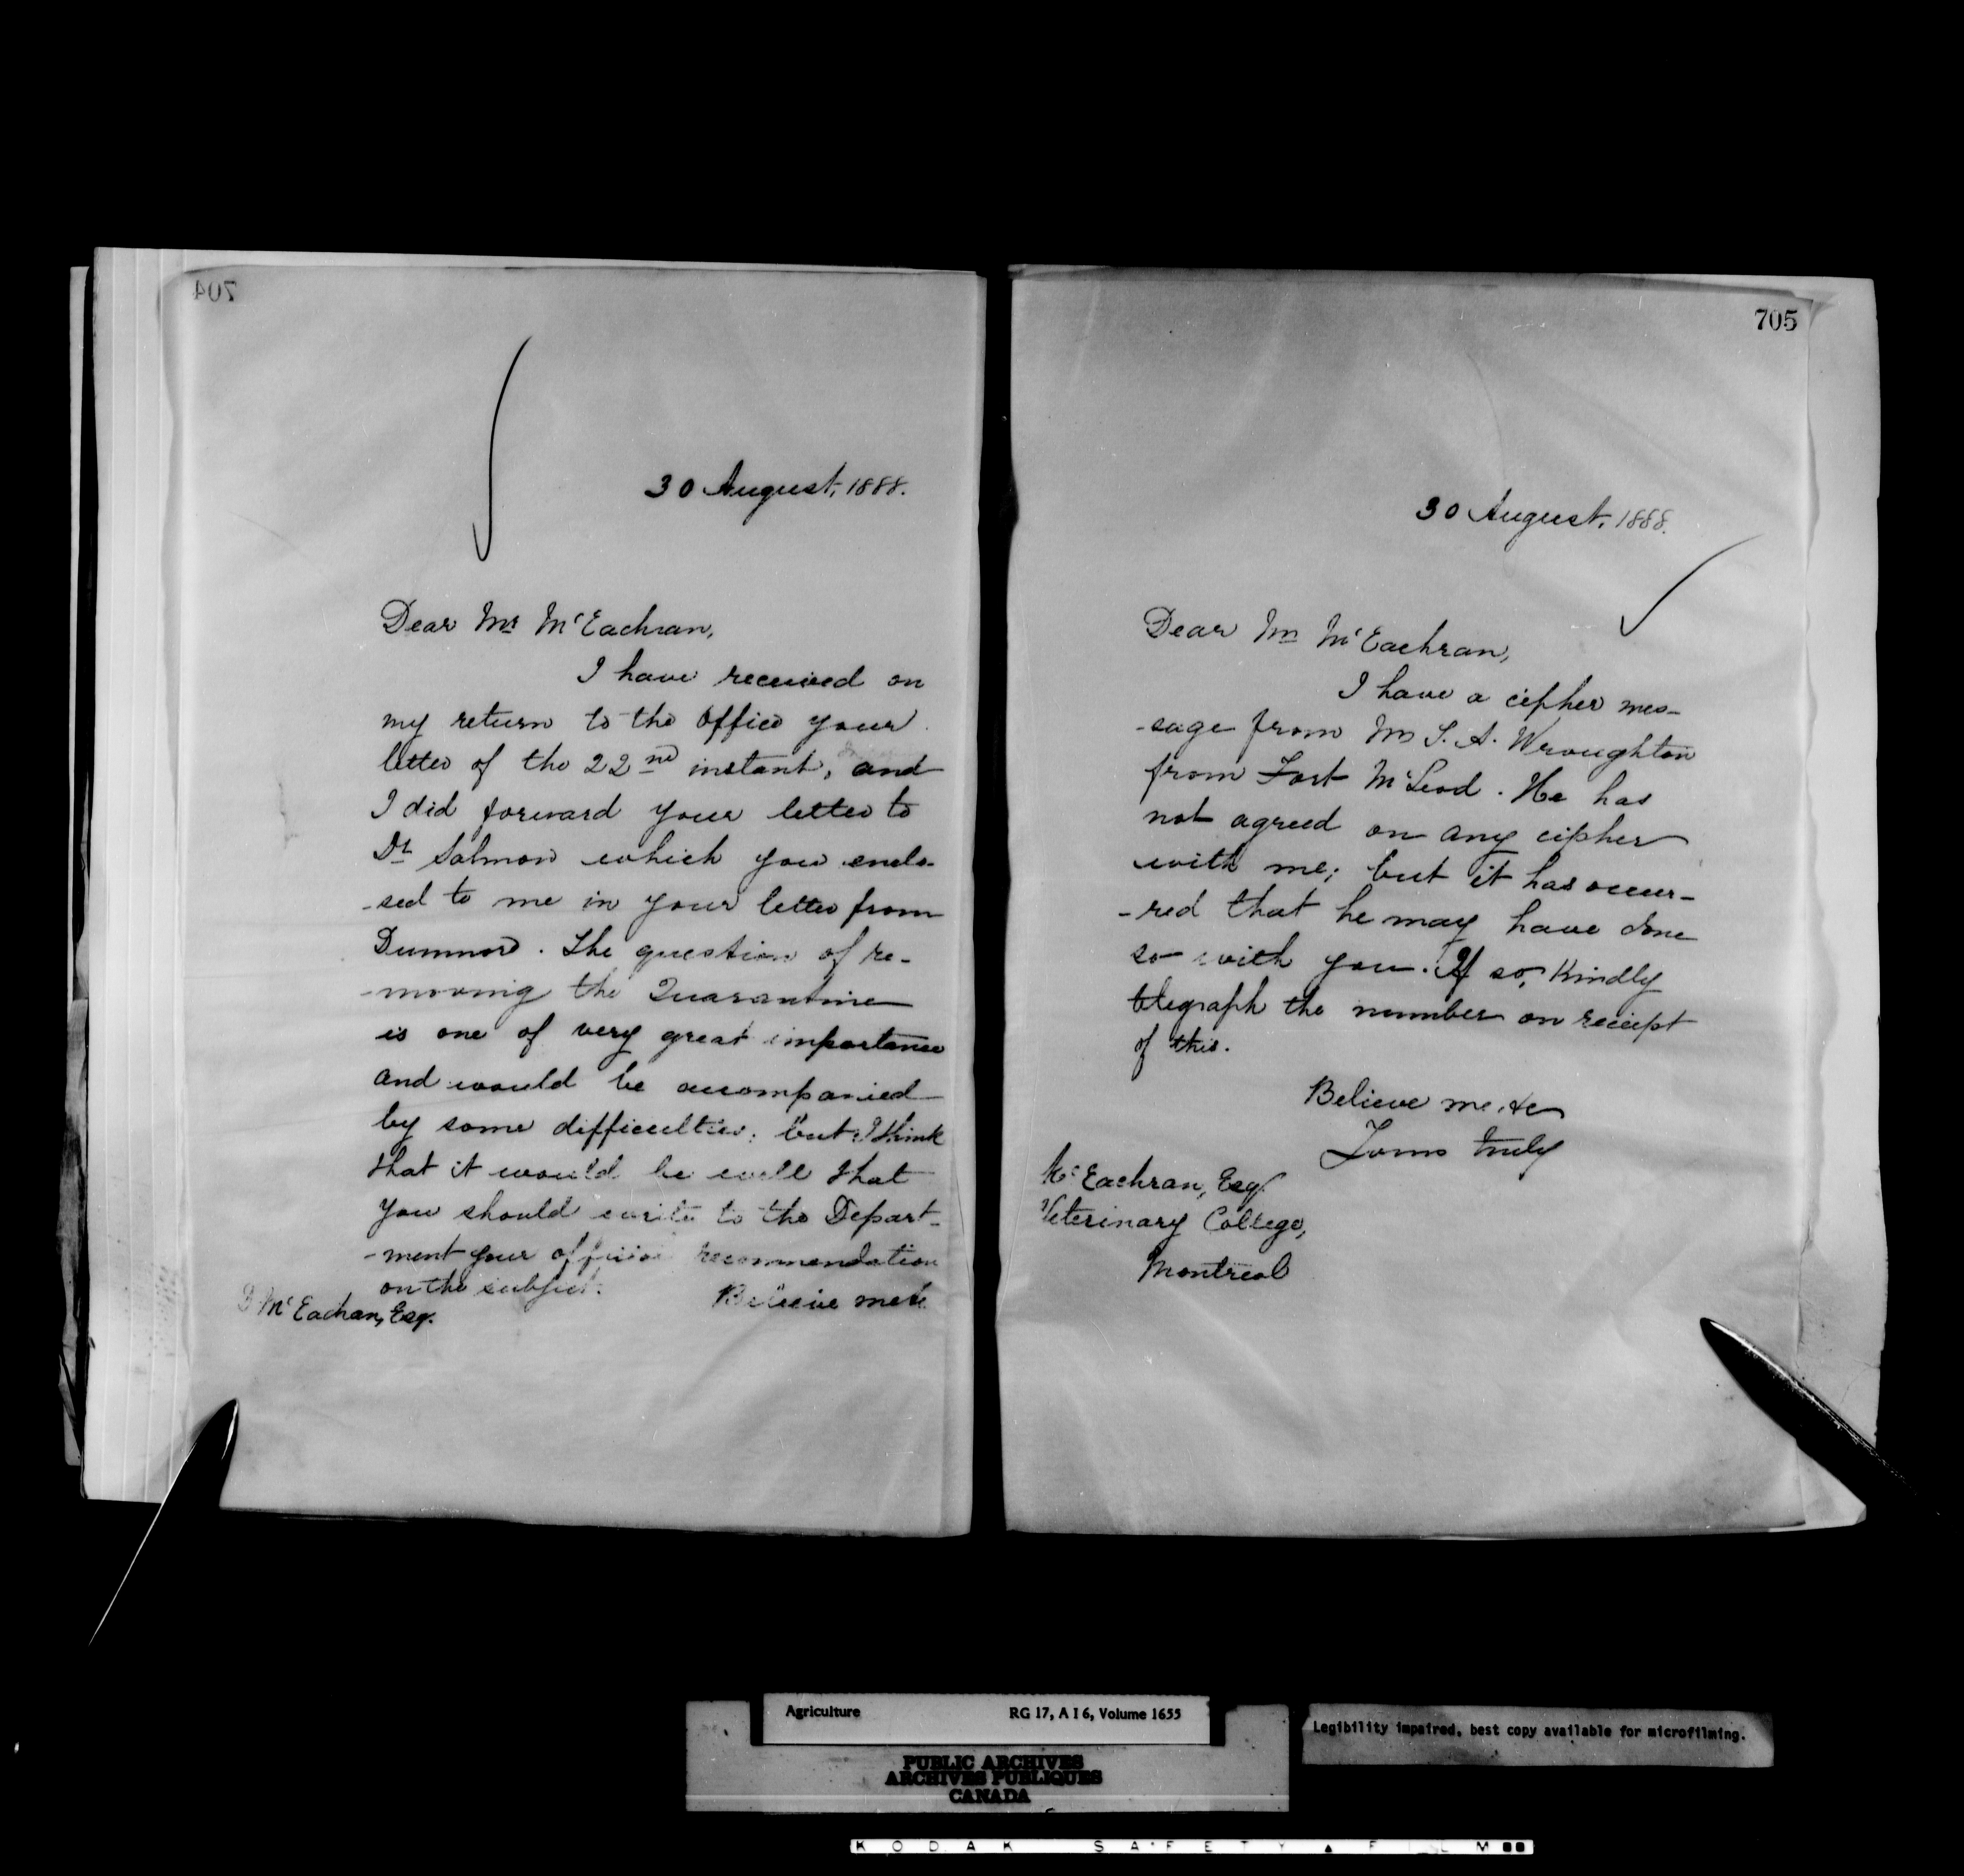 704
30 August, 1888.
Dear Mr McEachran,
I have received on
my return to the Office your
letter of the 22nd instant, and
I did forward your letter to
Dr Salmon which you enclo-
-sed to me in your letter from
Dunmore. The question of re-
-moving the Quarantine
is one of very great importance
and would be accompanied
by some difficulties; but I think
that it would be well that
you should write to the Depart-
-ment your official recommendation
on the subject.
Believe me &c
D McEachran, Esq.
705
30 August, 1888.
Dear Mr McEachran,
I have a cipher mes-
-sage from Mr S. A. Wroughton
from Fort McLeod. He has
not agreed on any cipher
with me; but it has occur-
-red that he may have done
so with you. If so, Kindly
telegraph the number on receipt
of this.
Believe me, &c
Yours truly
McEachran, Esq
Veterinary College,
Montreal
Agriculture RG 17, A I 6, Volume 1655
PUBLIC ARCHIVES
ARCHIVES PUBLIQUES
CANADA
Legibility impaired, best copy available for microfilming.
KODAK SAFETY FILM